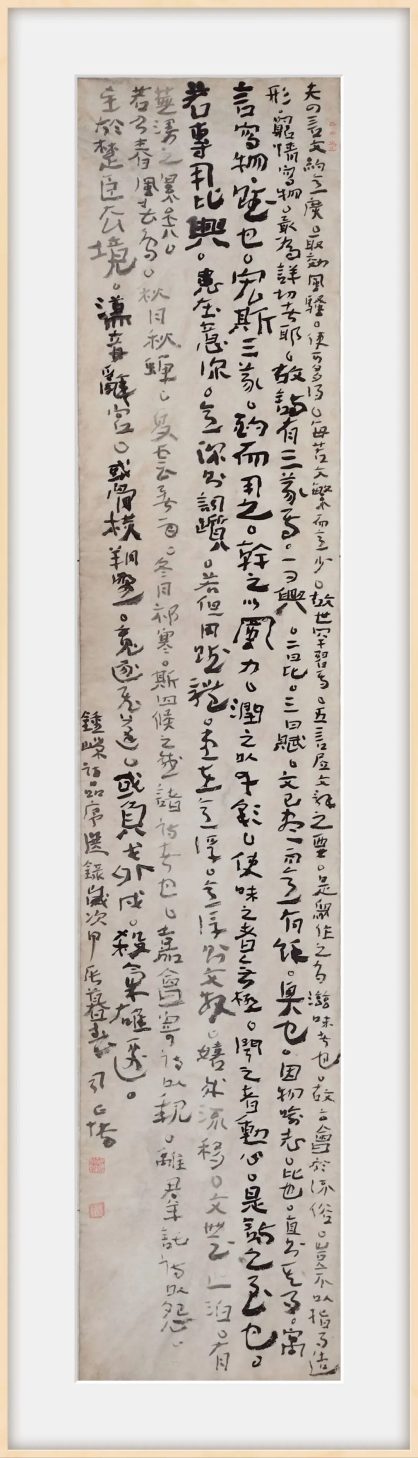 夫四言文約意廣。取効風騷。便可多得。每苦文繁而意少。故世罕習焉。五言居文詞之要。是衆作之有滋味者也。故云會於流俗。豈不以指事造
形。窮情寫物。最為詳切者耶。故詩有三義焉。一曰興。二曰比。三曰賦。文已盡而意有餘。興也。因物喻志。比也。直書其事。寓
言寫物。賦也。宏斯三義。酌而用之。幹之以風力。潤之以丹彩。使味之者無極。聞之者動心。是詩之至也。
若專用比興。患在意深。意深則詞躓。若但用賦體。患在意浮。意浮則文散。嬉成流移。文無止泊。有
蕪漫之累矣。
若乃春風春鳥。秋月秋蟬。夏雲暑雨。冬月祁寒。斯四候之感諸詩者也。嘉會寄詩以親。離羣託詩以怨。
至於楚臣去境。漢妾辭宮。或骨橫朔野。魂逐飛蓬。或負戈外戍。殺氣雄邊。
鍾嶸詩品序選錄歲次甲辰暮春